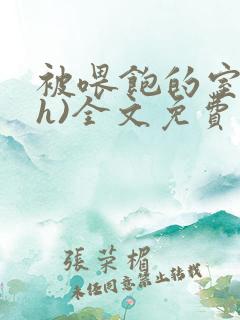 被喂飽的室
h)全文免費
張榮楣
未任同意禁止转载